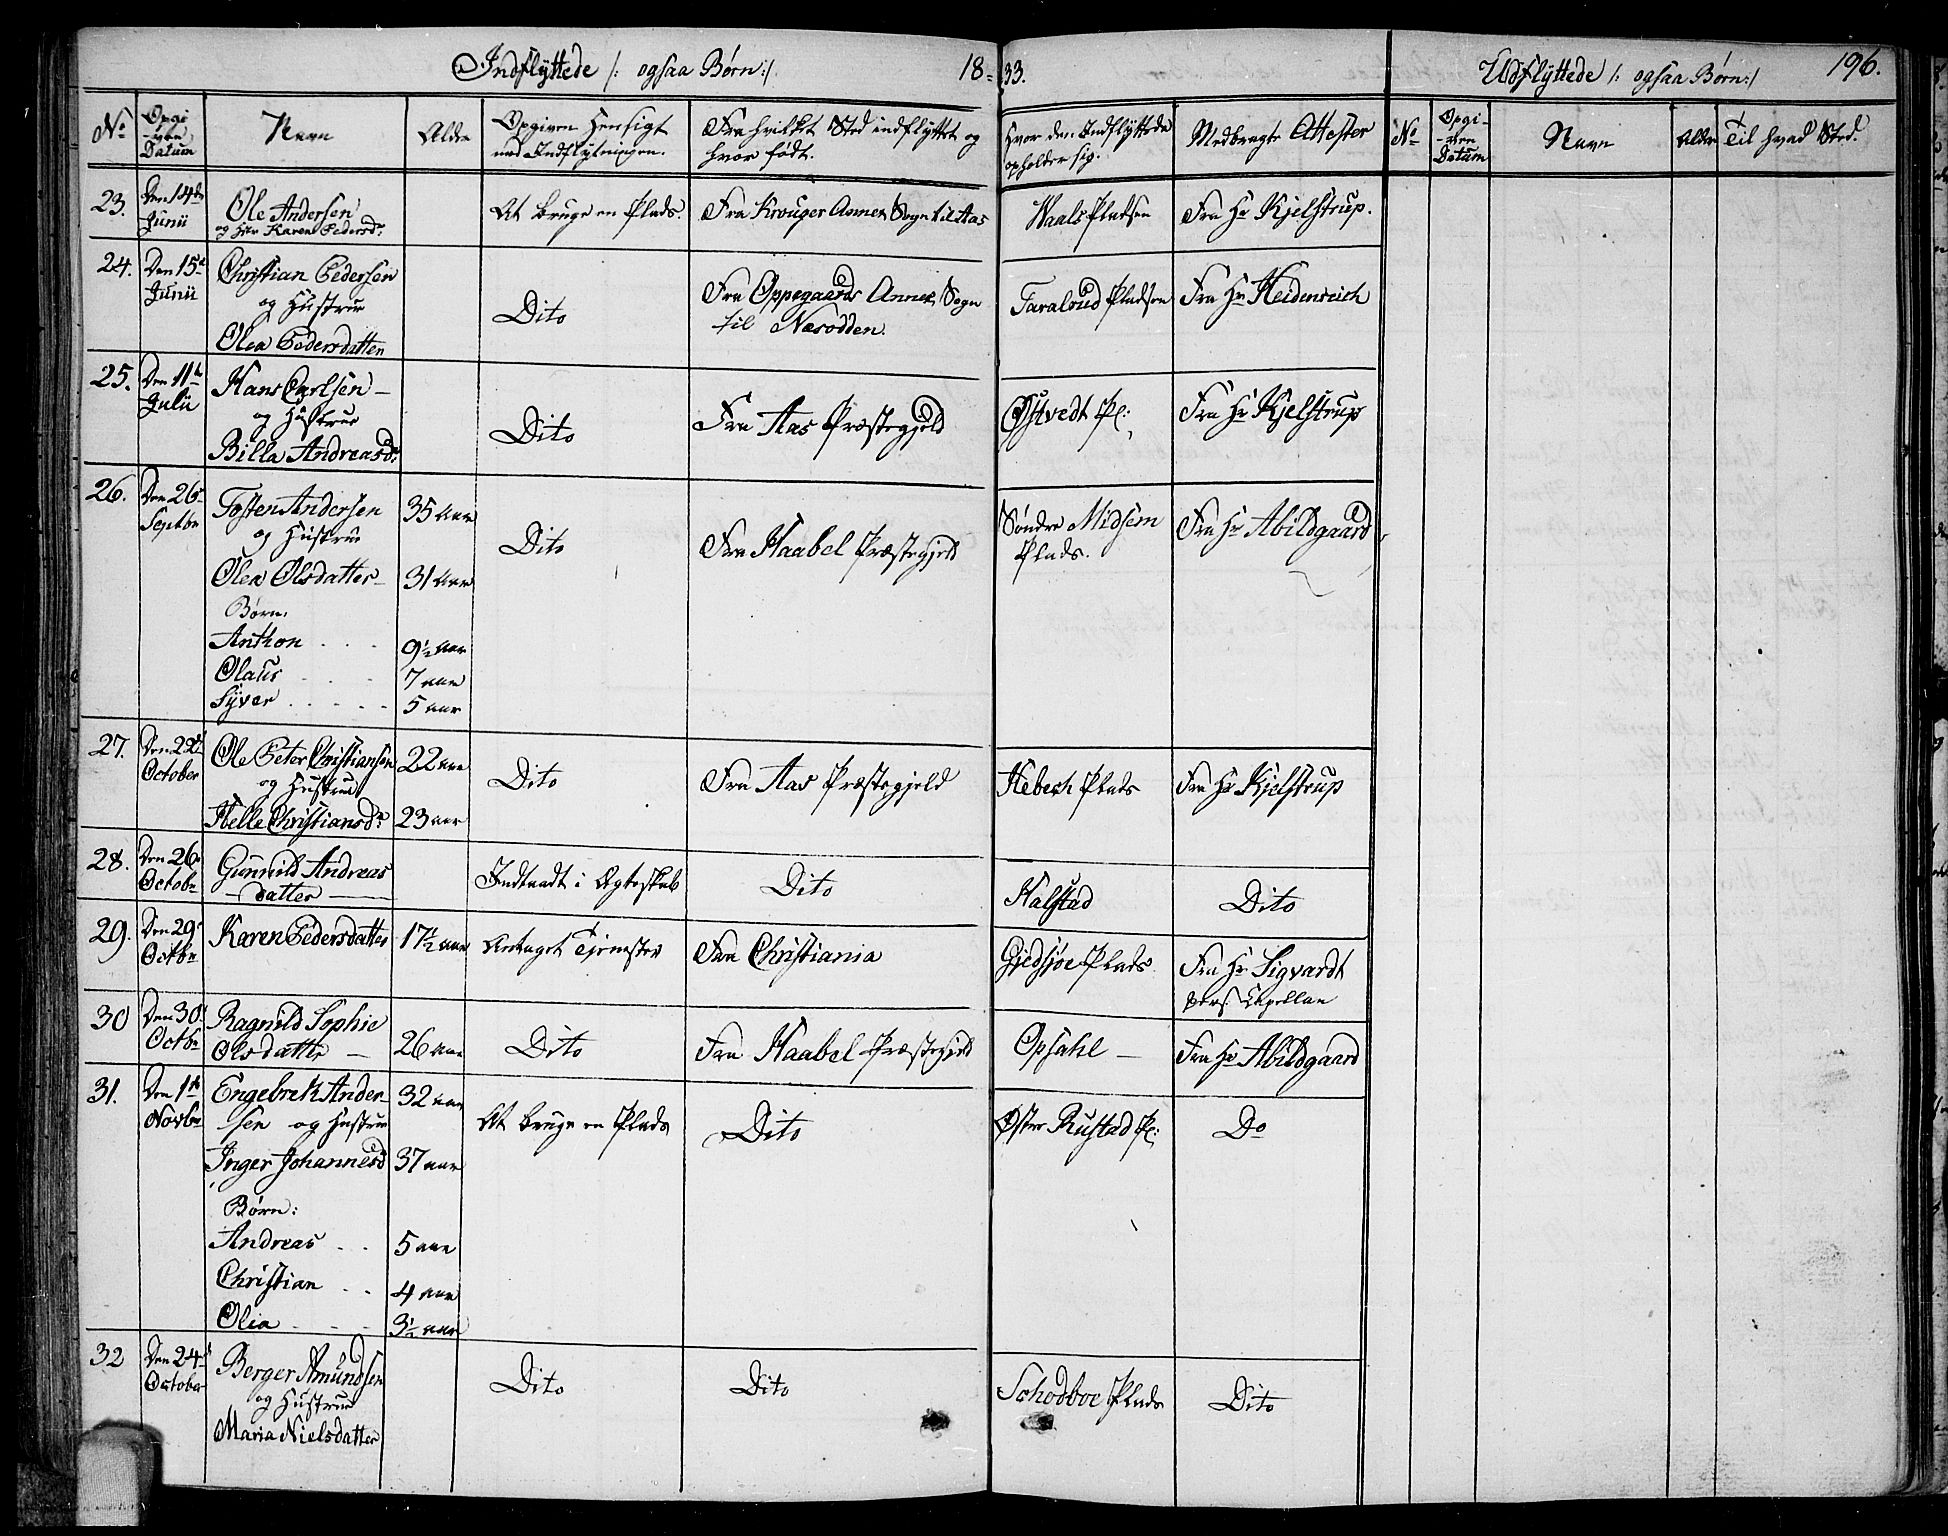 Indflyttede /: ogsaa Børn:/ 18-33.
Udflyttede /: ogsaa Børn:/ 196.
No Opgi-
ven
Datum Navn Alder Opgiven Hensigt
med Indflytningen. Fra hvilket Sted indflyttet og
hvor født. Hvor den Indflyttede
opholder sig. Medbragte Attester No Opgi-
ven
Datum Navn Alder Til hvad Sted.
23. Den 14de
Junii Ole Andersen
og Hstr Karen Pedersdr At bruge en Plads. Fra Krouger Annex Sogn til Aas Waals Pladsen Fra Hr Kjelstrup.
24. Den 15de
Junii Christian Pedersen
og Hustrue
Olea Pedersdatten Dito Fra Oppegaards Annex Sogn
til Næsodden. Taralrud Pladsen Fra Hr Heidenreich
25. Den 11te
Julii Hans Carlsen –
og Hustrue
Billa Andreasdr Dito Fra Aas Præstegjeld Østvedt Pl: Fra Hr Kjelstrup
26. Den 26de
Septbr Tosten Andersen
og Hustrue 35 aar
Olea Olsdatter – 31 aar
Børn:
Anthon . . . 9½ aar
Olaus . . . 7 aar
Syver . . . . . 5 aar
Dito Fra Haabel Præstegjeld Søndre Midsem
Plads. Fra Hr Abildgaard
27. Den 22de
October Ole Peter Christiansen
og Hustrue 22 aar
Helle Christiansdr 23 aar Dito Fra Aas Præstegjeld Hebech Plads Fra Hr Kjelstrup
28. Den 26de
Octobr Gunnild Andreas
– datter – Indtraadt i Ægteskab Dito Halstad Dito
29. Den 29de
Octbr Karen Pedersdatter 17½ aar Antaget Tjeneste Fra Christiania Gjedsjøe Plads. Fra Hr Sigvardt
pers: Capellan
30 Den 30te
Octbr Ragnild Sophie
Olsdatter – 26 aar Dito Fra Haabel Præstegjeld Opsahl – Fra Hr Abildgaard
31. Den 1te
Novbr Engebrek Ander-
sen og Hustrue 32 aar
Inger Johannesd 37 aar
Børn:
Andreas . . 5 aar
Christian . . 4 aar
Olia . . . 3½ aar
At bruge en Plads Dito Øster Rustad Pl: Do
32 Den 24de
October Berger Amundsen
og Hustrue
Maria Nielsdatter Dito Dito Schodboe Plads Dito